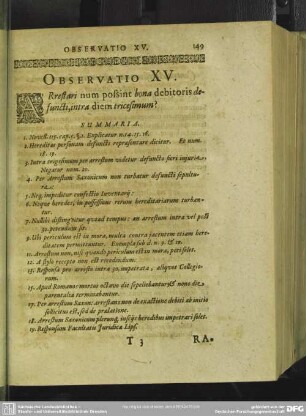 OBSERVATIO XV. 149
OBSERVATIO XV.
ARrestari num possint bona debitoris de-
functi, intra diem tricesimum?
SUMMARIA.
1. Novell. 115. cap. 5. §. 1. Explicatur n. 14. 15. 16.
2. Hereditas personam defuncti repraesentare dicitur. Et num.
18. 19.
3. Intra trigesimum per arrestum videtur defuncto fieri injuria.
Negatur num. 20.
4. Per Arrestum Saxonicum non turbatur defuncti sepultu-
ra.
5. Neq; impeditur confectio Inventarij:
6. Neque heredes, in possessione rerum hereditariarum turban-
tur.
7. Nullibi distinguitur quoad tempus: an arrestum intra vel post
30. petendum sit.
9. Ubi periculum est in mora, multa contra jacentem etiam here-
ditatem permittuntur.
10. Arrestum non, nisi quando periculum est in mora, peti solet.
12. A stylo recepto non est recedendum.
13. Responsa pro arresto intra 30. impetrato, aliquot Collegio-
rum.
15. Apud Romanos mortui octavo die sepeliebantur, & nono die
parentalia terminabantur.
17. Per arrestum Saxon: arrestans non de exactione debiti ab initio
sollicitus est, sed de praelatione.
18. Arrestum Saxonicum plerunq; insciis heredibus impetrari solet.
19. Responsum Facultatis Juridicae Lips.
T 3 RA-